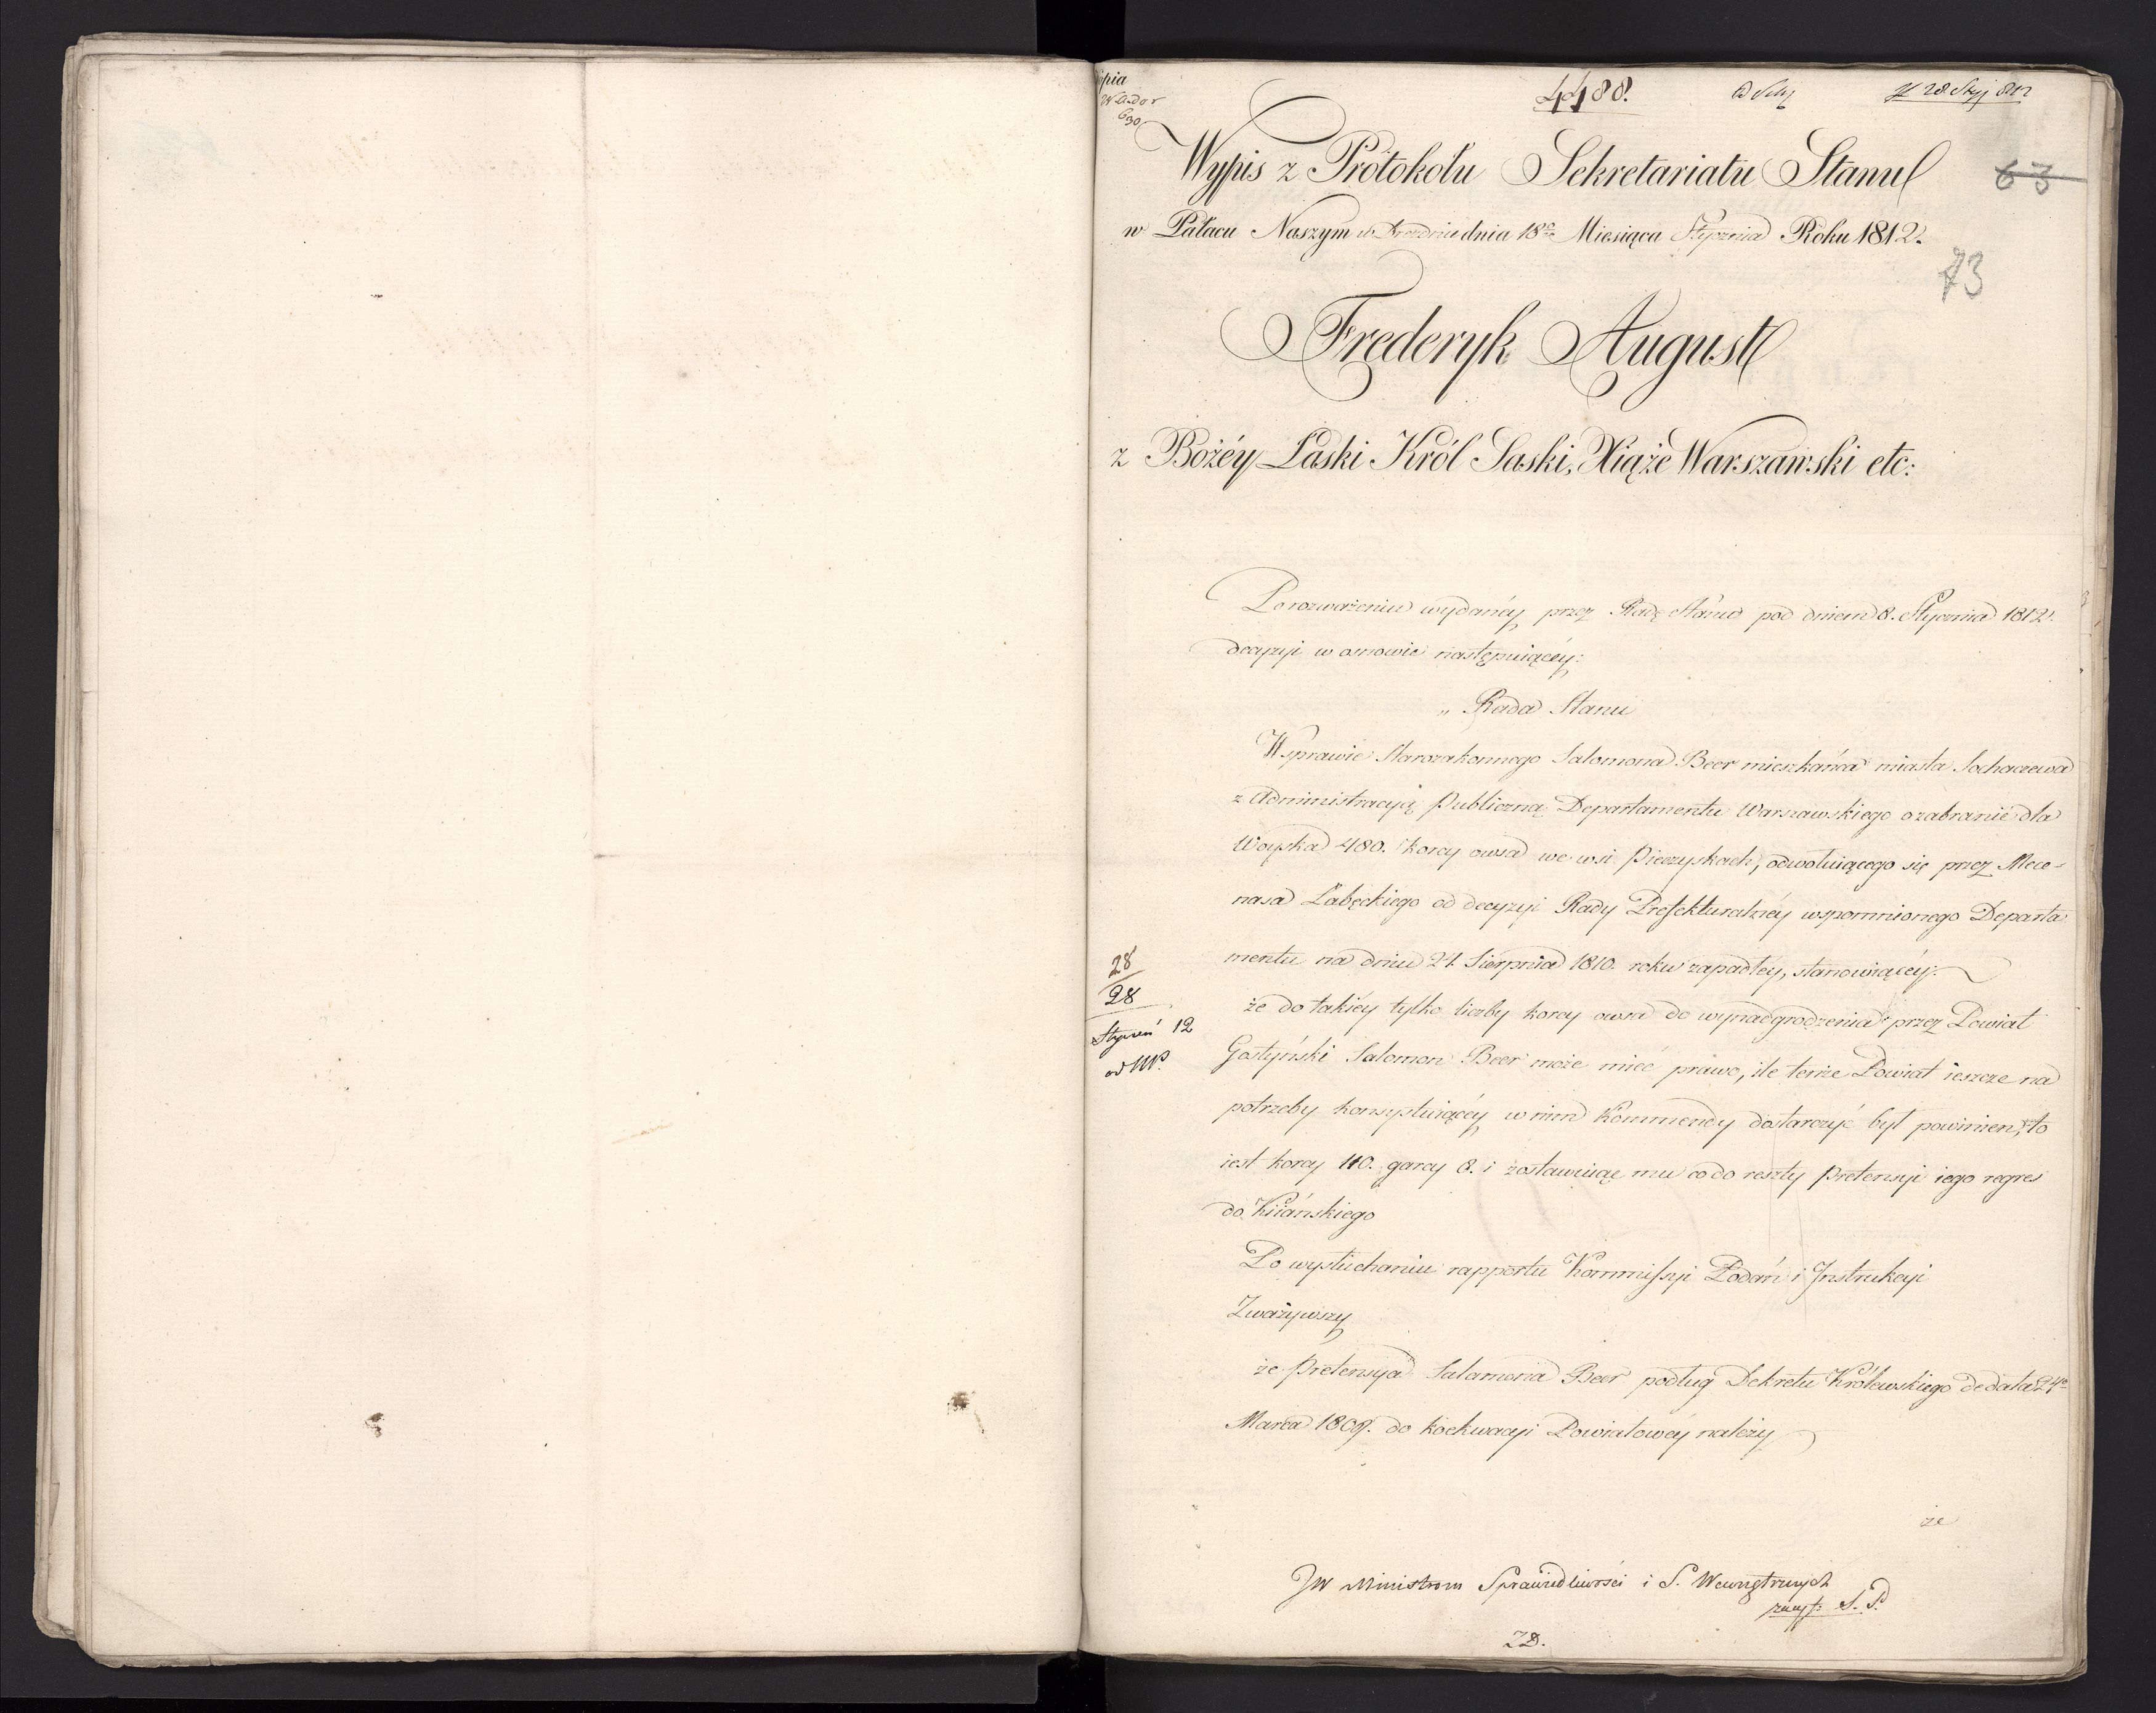 4488.
28 Sty 812
Wypis z Protokołu Sekretariatu Stanu
63
w Pałacu Naszym w Dreznie dnia 18go Miesiąca Stycznia Roku 1812.
73
Frederyk August
z Bożéy Łaski Król Saski, Xiąże Warszawski etc:
Po rozważeniu wydanéy przez Radę Stanu pod dniem 8. Stycznia 1812.
decyzyi w osnowie następuiącéy:
„ Rada Stanu
W sprawie Starozakonnego Salomona Beer mieszkańca miasta Sochaczewa
z Administracyią Publiczną Departamentu Warszawskiego o zabranie dla
Woyska 480. korcy owsa we wsi Pieczyskach, odwołuiącego się przez Mece-
nasa Łabęckiego od decyzyi Rady Prefekturalnéy wspomnionego Departa
mentu na dniu 24. Sierpnia 1810. roku zapadłey, stanowiącéy:
28
28
Styczeń 12
że do takiéy tylko liczby korcy owsa do wynadgrodzenia przez Powiat
Gostyński Salomon Beer może mieć prawo, ile tenże Powiat ieszcze na
potrzeby konsystuiącéy w nim Kommendy dostarczyć był powinien, to
iest korcy 110. garcy 8. i zostawuiąc mu co do reszty pretensyi iego regres
do Kiiańskiego
Po wysłuchaniu rapportu Kommissyi Podań i Instrukcyi
Zważywszy
że pretensyia Salamona Beer podług Dekretu Królewskiego de dato 24o
Marca 1809. do koekwacyi Powiatowéy należy
że
JW Ministrom Sprawiedliwości i S. Wewnętrznych